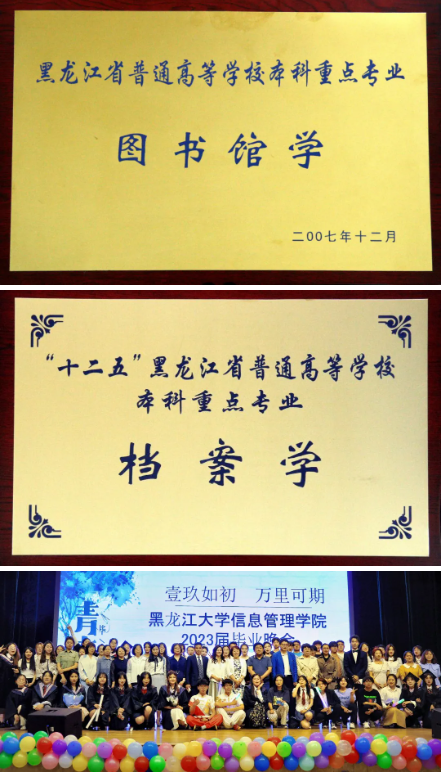 黑龙江省普通高等学校本科重点专业
图书馆学
二00七年十二月
“十二五”黑龙江省普通高等学校
本科重点专业
档案学
壹玖如初 万里可期
青
黑龙江大学信息管理学院
2023届毕业晚会